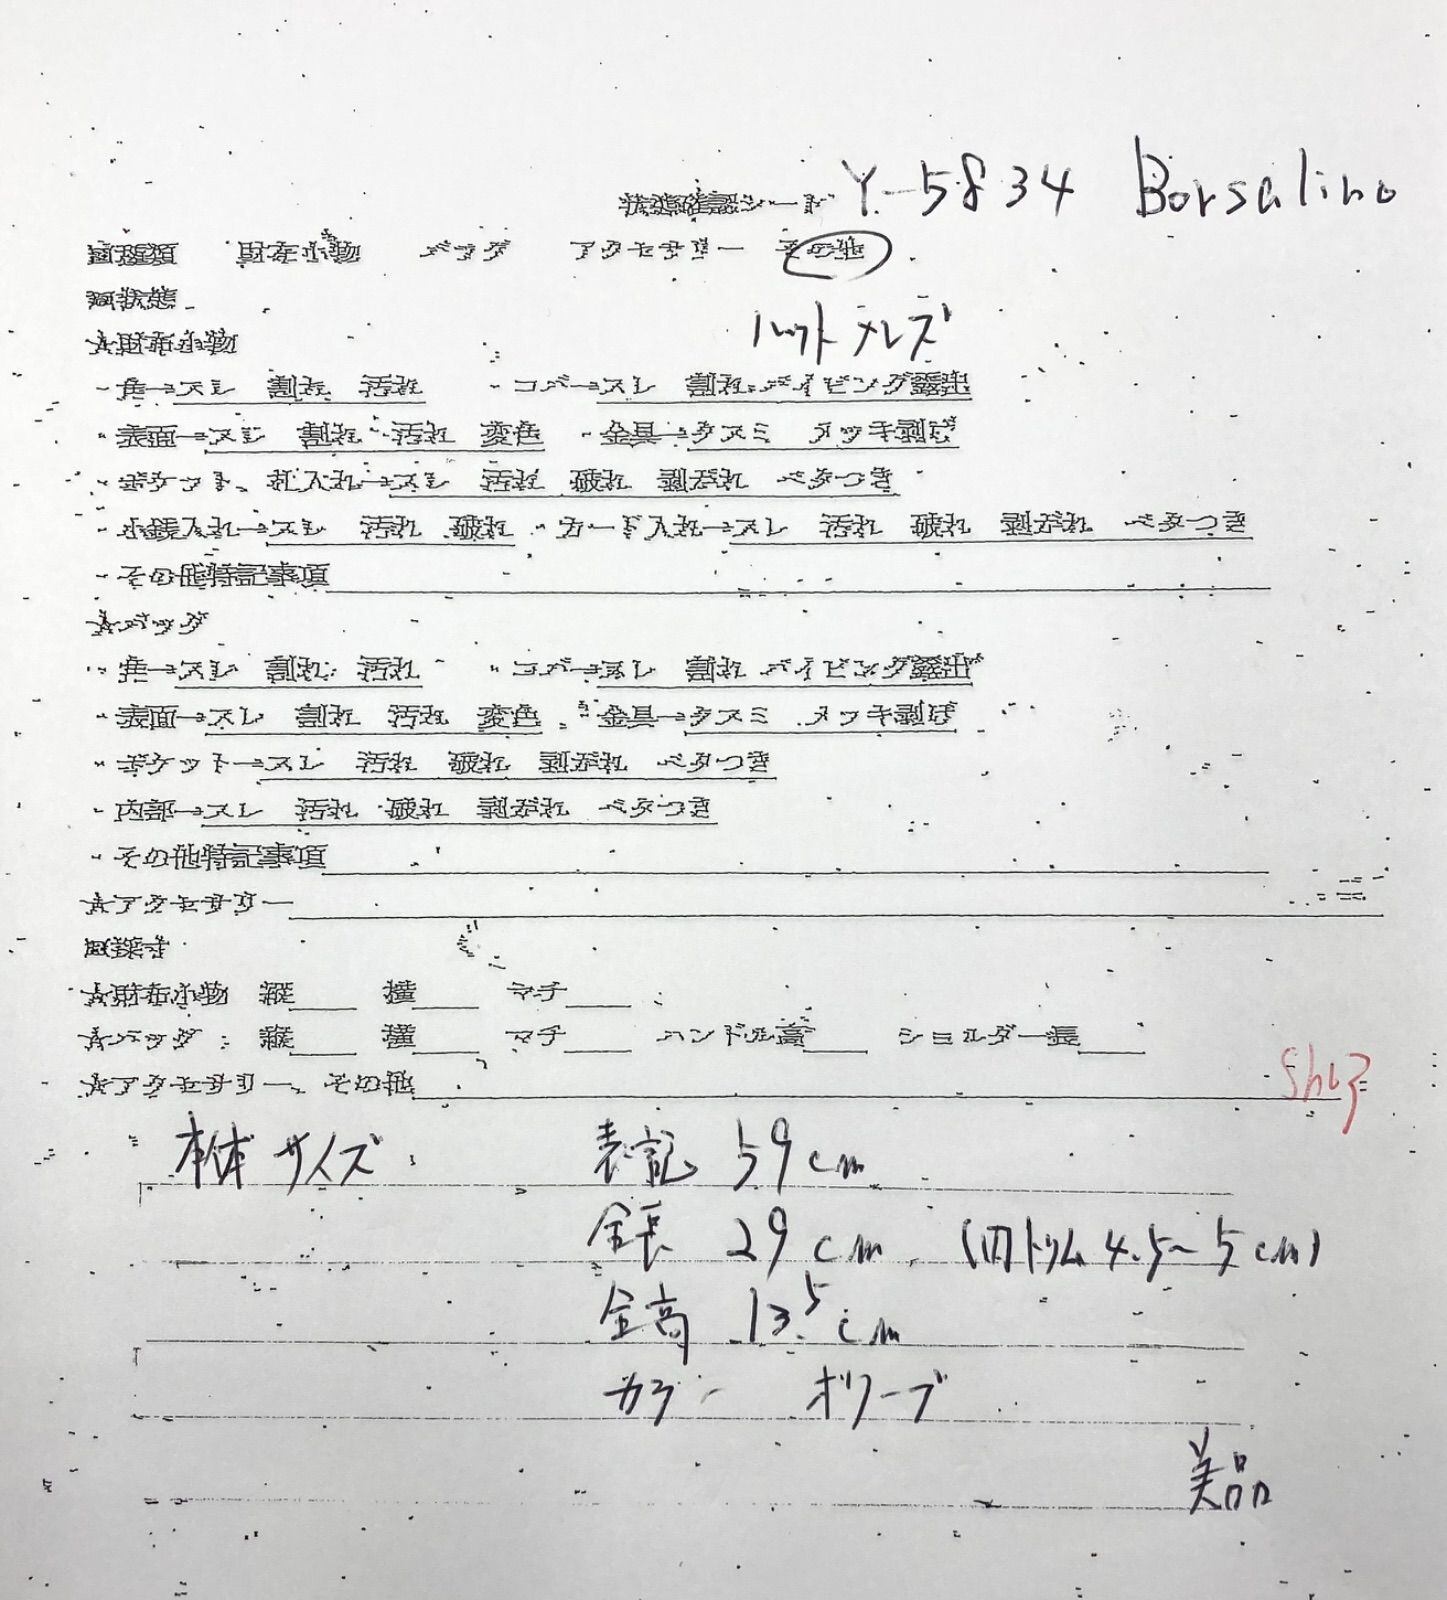 状態確認シート Y-5834 Borsalino
財布小物 バッグ アクセサリー その他
状態
ハット メンズ
☆財布小物
・角→スレ 割れ 汚れ ・コバ→スレ 割れ パイピング露出
・表面→スレ 割れ 汚れ 変色 ・金具→クスミ メッキ剥げ
・ポケット、札入れ→スレ 汚れ 破れ 剥がれ ベタつき
・小銭入れ→スレ 汚れ 破れ ・カード入れ→スレ 汚れ 破れ 剥がれ ベタつき
・その他特記事項
☆バッグ
・角→スレ 割れ 汚れ ・コバ→スレ 割れ パイピング露出
・表面→スレ 割れ 汚れ 変色 ・金具→クスミ メッキ剥げ
・ポケット→スレ 汚れ 破れ 剥がれ ベタつき
・内部→スレ 汚れ 破れ 剥がれ ベタつき
・その他特記事項
☆アクセサリー
採寸
☆財布小物 縦 横 マチ
☆バッグ 縦 横 マチ ハンドル高 ショルダー長
☆アクセサリー、その他
本体サイズ 表記 59cm
全長 29cm (内トリム 4.5~5cm)
全高 13.5cm
カラー オリーブ
美品